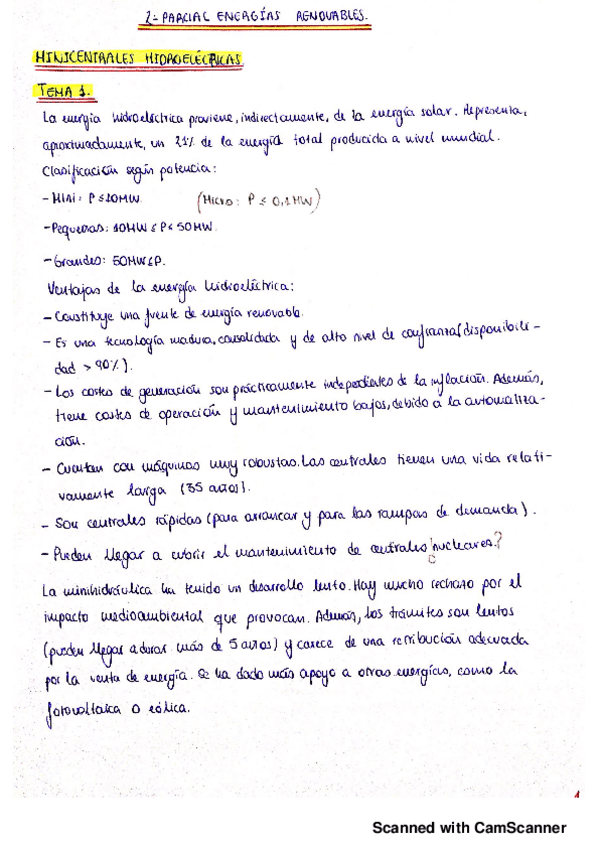 2- PARCIAL ENERGÍAS RENOVABLES.
MINICENTRALES HIDROELÉCTRICAS
TEMA 1.
La energía hidroeléctrica proviene, indirectamente, de la energía solar. Representa,
aproximadamente, un 21% de la energía total producida a nivel mundial.
Clasificación según potencia:
- Mini: P ≤ 10MW. (Micro: P ≤ 0,1MW)
- Pequeñas: 10MW ≤ P < 50MW.
- Grandes: 50MW ≤ P.
Ventajas de la energía hidroeléctrica:
- Constituye una fuente de energía renovable.
- Es una tecnología madura, consolidada y de alto nivel de confianza (disponibili-
dad > 90%).
- Los costes de generación son prácticamente independientes de la inflación. Además,
tiene costes de operación y mantenimiento bajos, debido a la automatiza-
ción.
- Cuentan con máquinas muy robustas. Las centrales tienen una vida relati-
vamente larga (35 años).
- Son centrales rápidas (para arrancar y para las rampas de demanda).
- Pueden llegar a cubrir el mantenimiento de centrales ¿nucleares?
La minihidráulica ha tenido un desarrollo lento. Hay mucho rechazo por el
impacto medioambiental que provocan. Además, los trámites son lentos
(pueden llegar a durar más de 5 años) y carece de una retribución adecuada
por la venta de energía. Se ha dado más apoyo a otras energías, como la
fotovoltaica o eólica.
1
Scanned with CamScanner